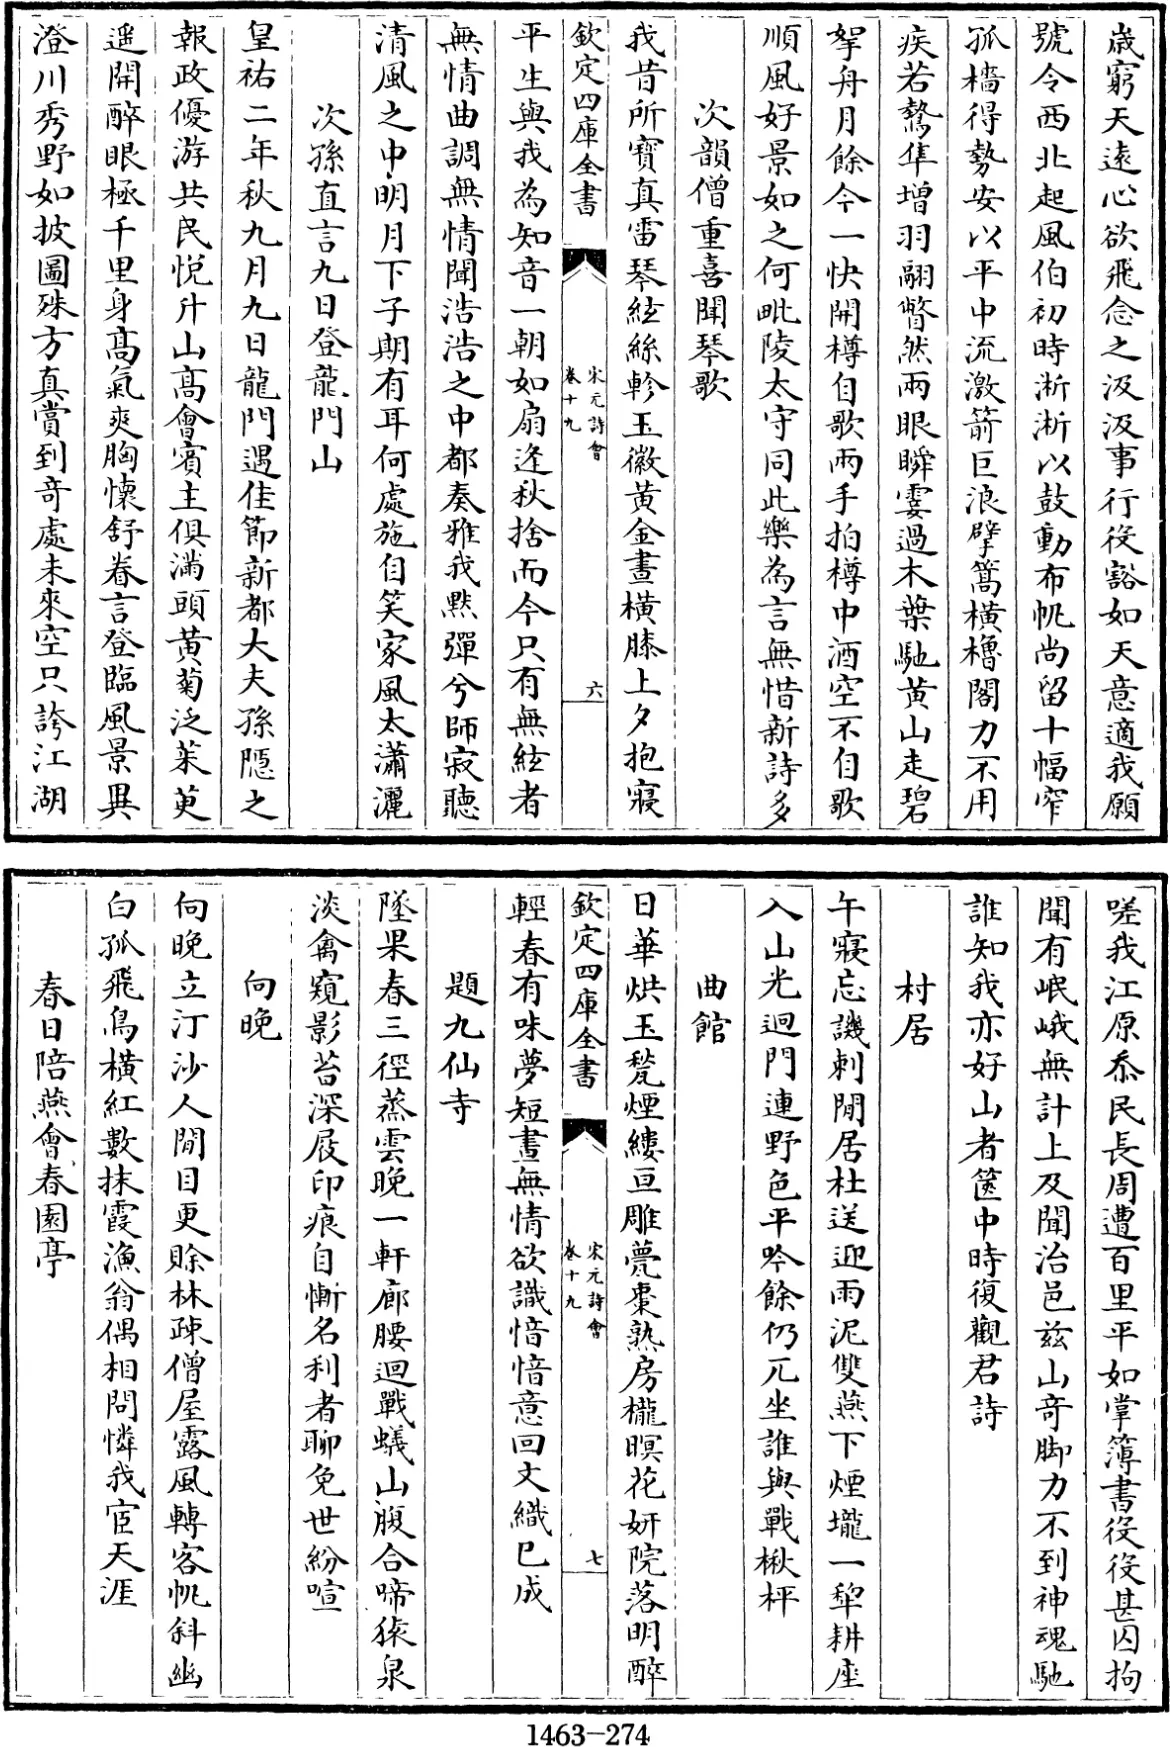 歳窮天遠心欲飛念之汲汲事行役豁如天意適我願
號令西北起風伯初時淅淅以鼓動布帆尚留十幅窄
孤檣得勢安以平中流激箭巨浪擘篙橫櫓閣力不用
疾若鷙隼增羽翮瞥然兩眼瞬霎過木葉馳黃山走碧
挐舟月餘今一快開樽自歌兩手拍樽中酒空不自歌
順風好景如之何毗陵太守同此樂為言無惜新詩多
次韻僧重喜聞琴歌
我昔所寶真雷琴絃絲軫玉徽黃金晝橫膝上夕抱寢
欽定四庫全書
宋元詩會
卷十九
六
平生與我為知音一朝如扇逢秋捨而今只有無絃者
無情曲調無情聞浩浩之中都奏雅我黙彈兮師寂聽
清風之中明月下子期有耳何處施自笑家風太瀟灑
次孫直言九日登龍門山
皇祐二年秋九月九日龍門遇佳節新都大夫孫隱之
報政優游共民悅升山高會賓主俱滿頭黃菊泛茱萸
遥開醉眼極千里身髙氣爽胸懷舒眷言登臨風景異
澄川秀野如披圖殊方真賞到奇處未來空只誇江湖
嗟我江原忝民長周遭百里平如掌簿書役役甚囚拘
聞有岷峨無計上及聞治邑兹山奇脚力不到神魂馳
誰知我亦好山者篋中時復觀君詩
村居
午寢忘譏刺閒居杜送迎雨泥雙燕下煙壠一犂耕座
入山光迴門連野色平吟餘仍兀坐誰與戰楸枰
曲館
日華烘玉甃煙縷亘雕甍棗熟房櫳暝花妍院落明醉
欽定四庫全書
宋元詩會
卷十九
七
輕春有味夢短晝無情欲識愔愔意回文織已成
題九仙寺
墜果春三徑蒸雲晚一軒廊腰迴戰蟻山腹合啼猿泉
淡禽窺影苔深屐印痕自慚名利者聊免世紛喧
向晚
向晚立汀沙人閒目更賖林疎僧屋露風轉客帆斜幽
白孤飛鳥橫紅數抹霞漁翁偶相問憐我宦天涯
春日陪燕會春園亭
1463-274